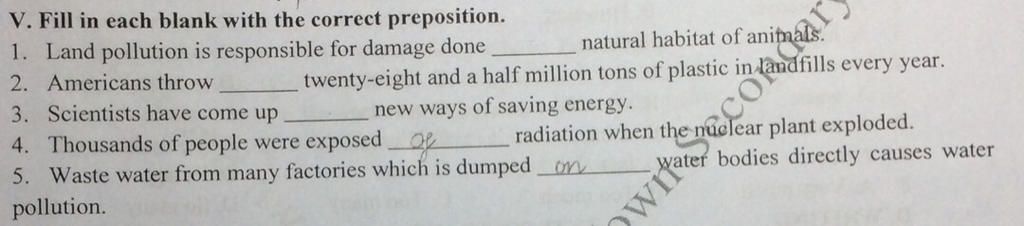 V. Fill in each blank with the correct preposition.
1. Land pollution is responsible for damage done ______ natural habitat of animals.
2. Americans throw ______ twenty-eight and a half million tons of plastic in landfills every year.
3. Scientists have come up ______ new ways of saving energy.
4. Thousands of people were exposed of radiation when the nuclear plant exploded.
5. Waste water from many factories which is dumped on water bodies directly causes water
pollution.
own Secondary